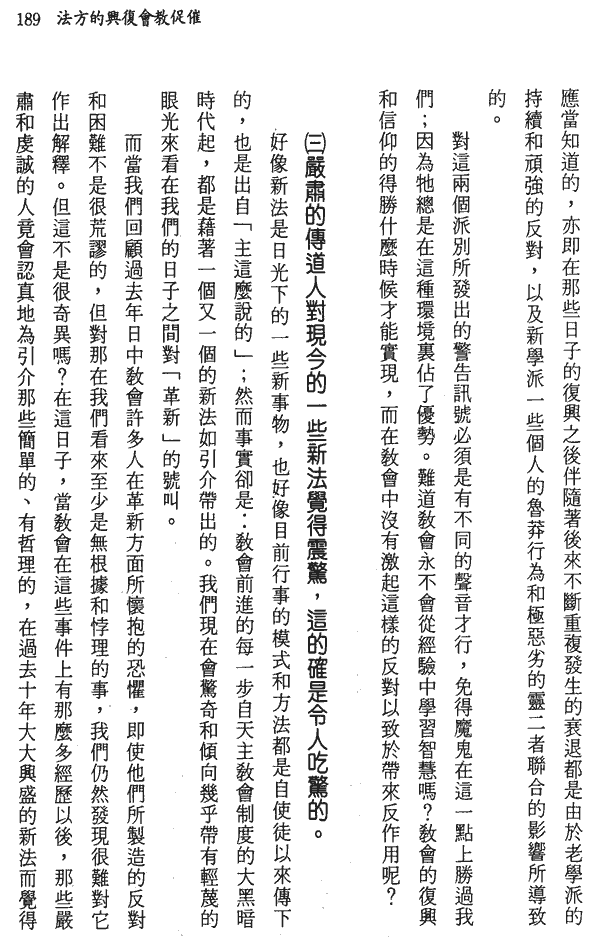 189 法方的興復會教促催
應當知道的，亦即在那些日子的復興之後伴隨著後來不斷重複發生的衰退都是由於老學派的
持續和頑強的反對，以及新學派一些個人的魯莽行為和極惡劣的靈二者聯合的影響所導致
的。
對這兩個派別所發出的警告訊號必須是有不同的聲音才行，免得魔鬼在這一點上勝過我
們；因為牠總是在這種環境裏佔了優勢。難道教會永不會從經驗中學習智慧嗎？教會的復興
和信仰的得勝什麼時候才能實現，而在教會中沒有激起這樣的反對以致於帶來反作用呢？
㈢嚴肅的傳道人對現今的一些新法覺得震驚，這的確是令人吃驚的。
好像新法是日光下的一些新事物，也好像目前行事的模式和方法都是自使徒以來傳下
的，也是出自「主這麼說的」；然而事實卻是：教會前進的每一步自天主教會制度的大黑暗
時代起，都是藉著一個又一個的新法如引介帶出的。我們現在會驚奇和傾向幾乎帶有輕蔑的
眼光來看在我們的日子之間對「革新」的號叫。
而當我們回顧過去年日中教會許多人在革新方面所懷抱的恐懼，即使他們所製造的反對
和困難不是很荒謬的，但對那在我們看來至少是無根據和悖理的事，我們仍然發現很難對它
作出解釋。但這不是很奇異嗎？在這日子，當教會在這些事件上有那麼多經歷以後，那些嚴
肅和虔誠的人竟會認真地為引介那些簡單的、有哲理的，在過去十年大大興盛的新法而覺得